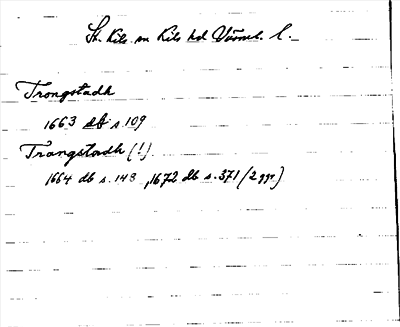 St. Kils sn Kils hd Värml. l.
Trongstadh
1663 db s. 109
Trangstadh (!)
1664 db s. 148, 1672 db s. 371 (2 ggr)